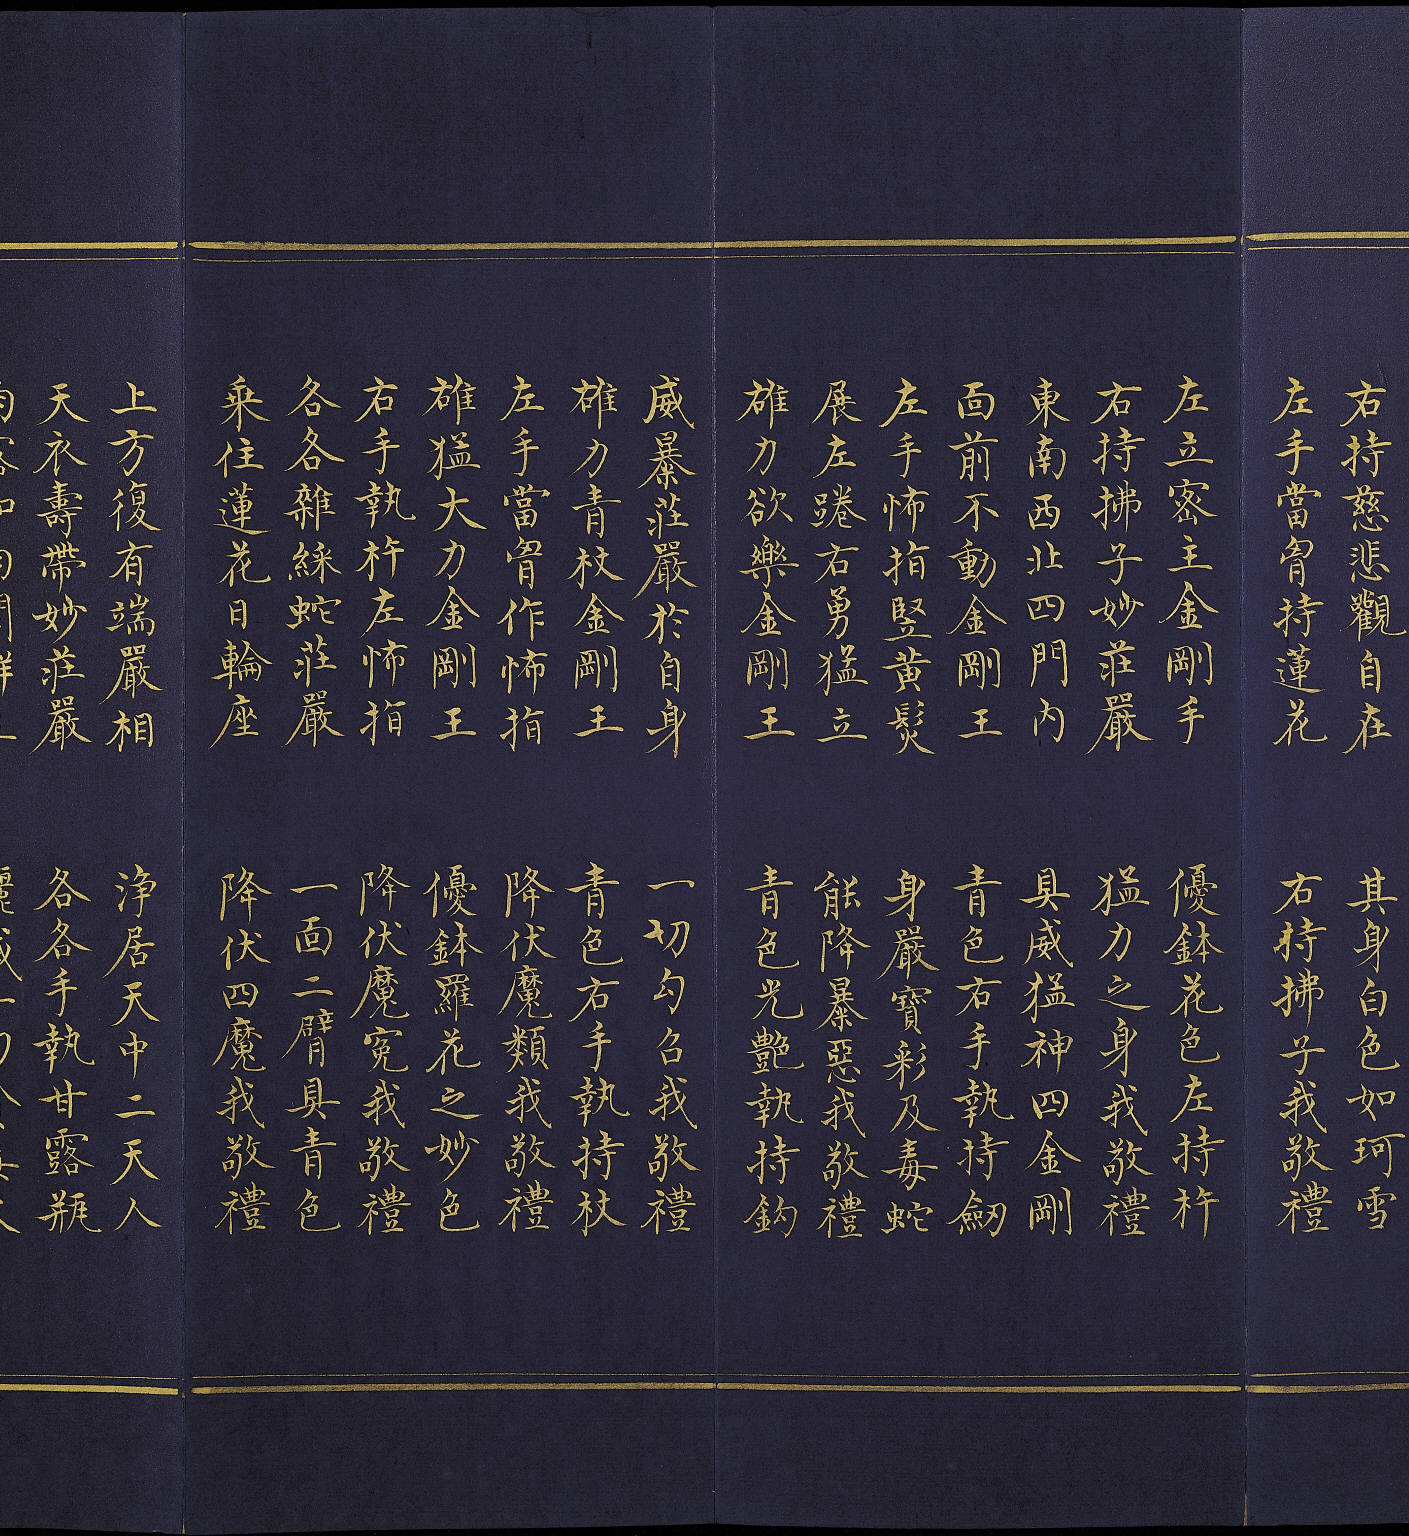 右持慈悲觀自在　其身白色如珂雪
左手當胷持蓮花　右持拂子我敬禮
左立宻主金剛手　優鉢花色左持杵
右持拂子妙莊嚴　猛力之身我敬禮
東南西北四門內　具威猛神四金剛
面前不動金剛王　青色右手執持劒
左手怖指竪黃髮　身嚴寶彩及毒蛇
展左踡右勇猛立　能降暴惡我敬禮
雄力欲樂金剛王　青色光艷執持鈎
威暴莊嚴於自身　一切勾召我敬禮
雄力青杖金剛王　青色右手執持杖
左手當胷作怖指　降伏魔類我敬禮
雄猛大力金剛王　優鉢羅花之妙色
右手執杵左怖指　降伏魔寃我敬禮
各各雜綵蛇莊嚴　一面二臂具青色
乘住蓮花日輪座　降伏四魔我敬禮
上方復有端嚴相　淨居天中二天人
天衣壽帶妙莊嚴　各各手執甘露瓶